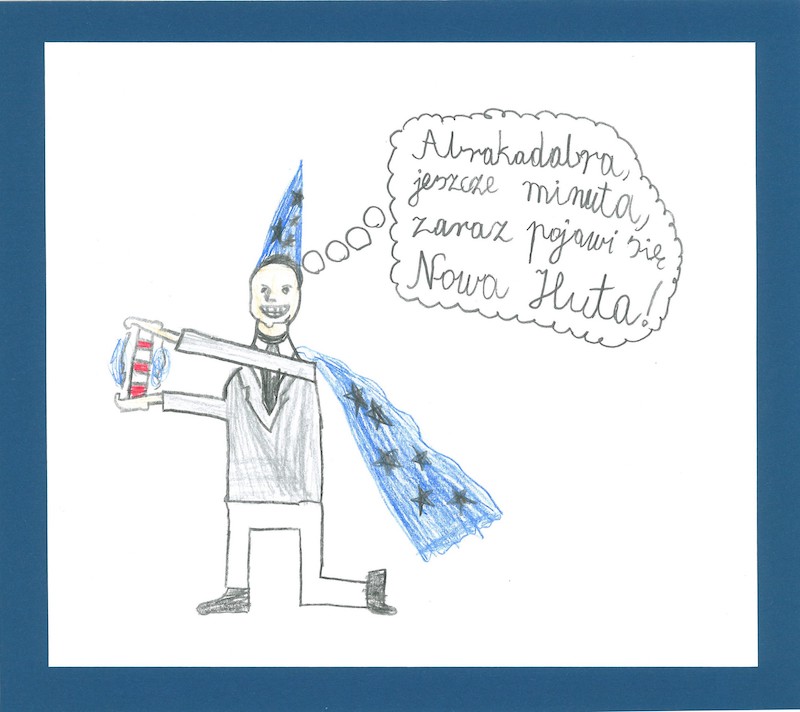 Abrakadabra,
jeszcze minuta,
zaraz pojawi się
Nowa Huta!